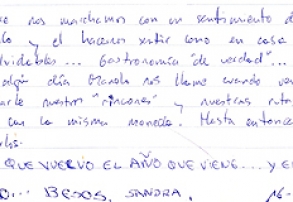 nos marchamos con un sentimiento d
y el hacernos sentir como en casa
lvidables... Gastronomía "de verdad"...
algún día Granada nos llame cuando ven
nuestros "rincones" y nuestras ruta
con la misma moneda. Hasta entonce
QUE VUELVO EL AÑO QUE VIENE... y E
BESOS, SANDRA.
16-